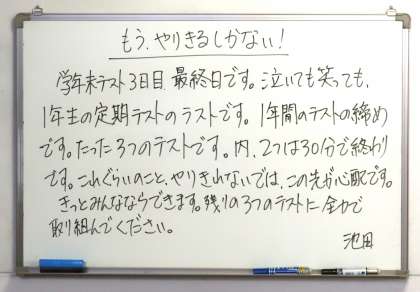 もう、やりきるしかない!
学年末テスト3日目 最終日です。泣いても笑っても、
1年生の定期テストのラストです。1年間のテストの締め
です。たった3つのテストです。内、2つは30分で終わり
です。これぐらいのこと、やりきれないでは、この先が心配です。
きっとみんなならできます。残りの3つのテストに全力で
取り組んでください。
池田